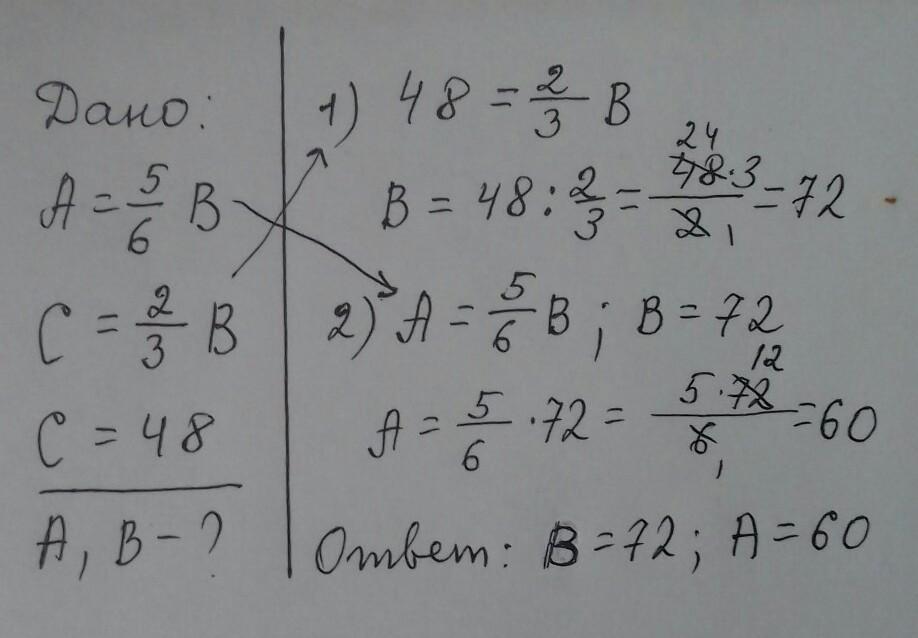 Дано:
A = 5/6 B
C = 2/3 B
C = 48
A, B - ?
1) 48 = 2/3 B
B = 48 : 2/3 = 48·3/2 = 72
24
1
2) A = 5/6 B ; B = 72
A = 5/6 · 72 = 5·72/6 = 60
12
1
Ответ: B = 72 ; A = 60